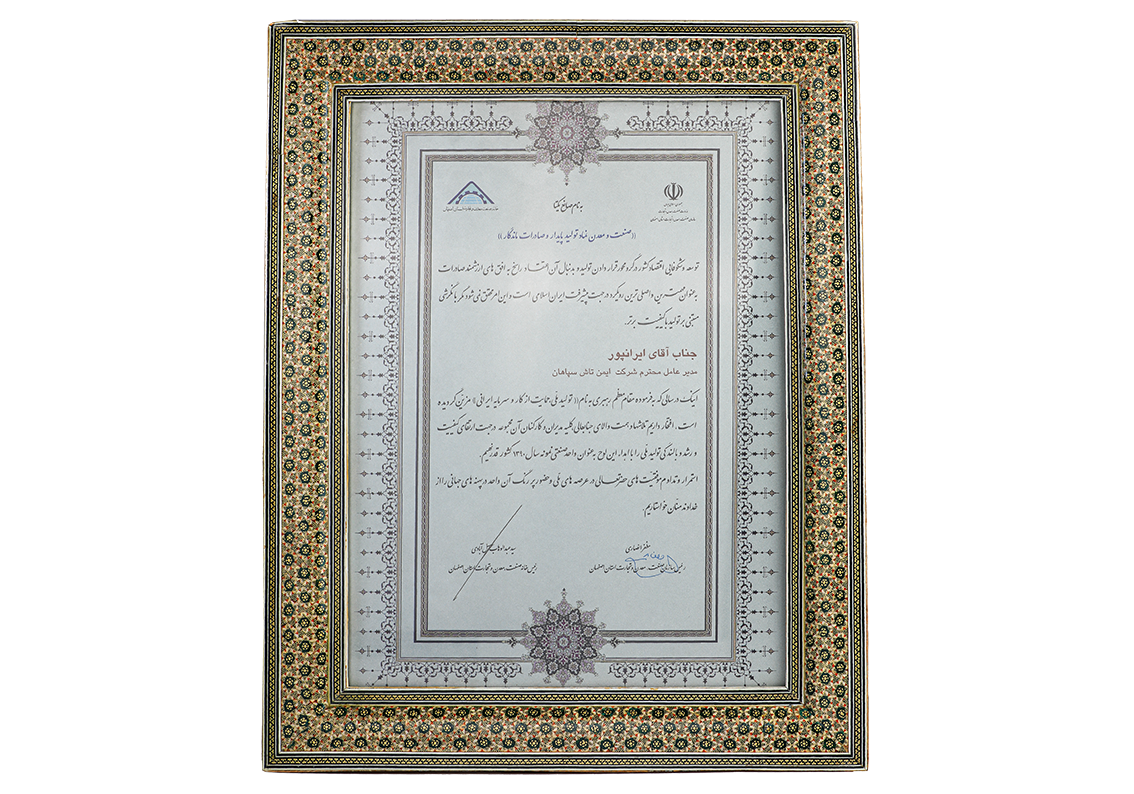 به نام صانع یکتا
((صنعت و معدن نماد تولید پایدار و صادرات ماندگار))
توسعه و شکوفایی اقتصاد کشور در گرو محور قرار دادن تولید و به دنبال آن اعتقاد راسخ به افق های ارزشمند صادرات
به عنوان مهمترین و اصلی ترین رویکرد در جهت پیشرفت ایران اسلامی است و این امر محقق نمی شود مگر با نگرشی
مبتنی بر تولید با کیفیت برتر.
جناب آقای ایرانپور
مدیر عامل محترم شرکت ایمن تاش سپاهان
اینک در سالی که به فرموده مقام معظم رهبری به نام ((تولید ملی، حمایت از کار و سرمایه ایرانی)) مزین گردیده
است. افتخار داریم تلاشها و همت والای جنابعالی کلیه مدیران و کارکنان آن مجموعه در جهت ارتقای کیفیت
و رشد و بالندگی تولید ملی را با اهدا این لوح به عنوان واحد صنعتی نمونه سال ۱۳۹۰ کشور قدر نهیم.
استمرار و تداوم موفقیت های حضرتعالی در عرصه های ملی و حضور پر رنگ آن واحد در پهنه های جهانی را از
خداوند منان خواستاریم.
مظفر انصاری
سید عبدالوهاب سهل آبادی
رئیس سازمان صنعت، معدن و تجارت استان اصفهان
رئیس خانه صنعت، معدن و تجارت استان اصفهان